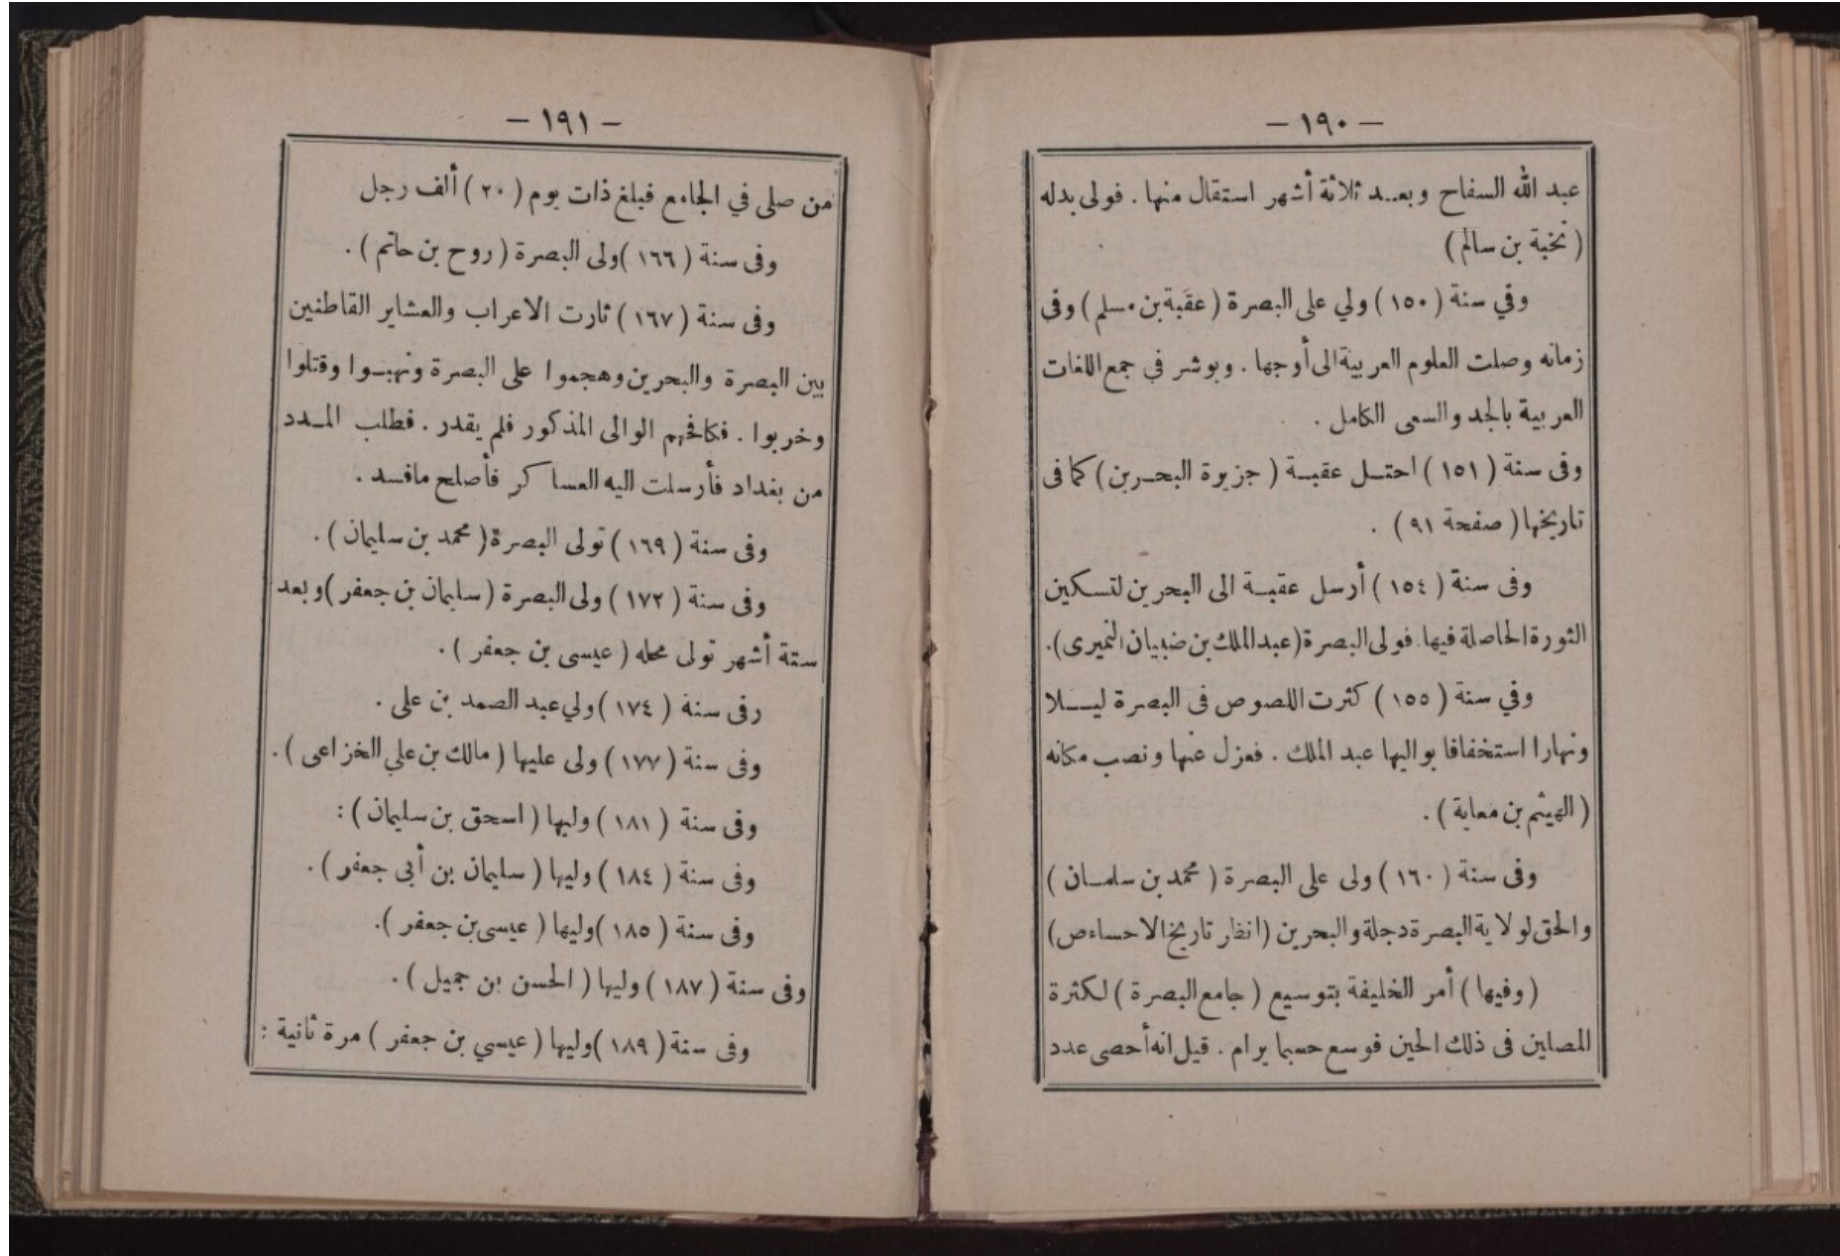 — ١٩٠ —
عبد الله السفاح وبعـد ثلاثة أشهر استقال منها . فولى بدله
( نخبة بن سالم )
وفي سنة ( ١٥٠ ) ولي على البصرة ( عقبة بن مسلم ) وفى
زمانه وصلت العلوم العربية الى أوجها . وبوشر في جمع اللغات
العربية بالجد والسعى الكامل .
وفى سنة ( ١٥١ ) احتـل عقبـة ( جزيرة البحـرين ) كما فى
تاريخها ( صفحة ٩١ ) .
وفى سنة ( ١٥٤ ) أرسل عقبـة الى البحرين لتسكين
الثورة الحاصلة فيها . فولى البصرة ( عبد الملك بن ضبيان النميرى ) .
وفي سنة ( ١٥٥ ) كثرت اللصوص فى البصرة ليـلا
ونهارا استخفافا بواليها عبد الملك . فعزل عنها ونصب مكانه
( الهيثم بن معاية ) .
وفى سنة ( ١٦٠ ) ولى على البصرة ( محمد بن سلمـان )
والحق لولاية البصرة دجلة والبحرين ( انظر تاريخ الاحساء ص )
( وفيها ) أمر الخليفة بتوسيع ( جامع البصرة ) لكثرة
المصلين فى ذلك الحين فوسع حسبما يرام . قيل انه أحصى عدد
— ١٩١ —
من صلى في الجامع فبلغ ذات يوم ( ٢٠ ) ألف رجل
وفى سنة ( ١٦٦ ) ولى البصرة ( روح بن حاتم ) .
وفى سنة ( ١٦٧ ) ثارت الاعراب والعشاير القاطنين
بين البصرة والبحرين وهجموا على البصرة ونهبـوا وقتلوا
وخربوا . فكافحهم الوالى المذكور فلم يقدر . فطلب المـدد
من بغداد فأرسلت اليه العساكر فأصلح مافسد .
وفى سنة ( ١٦٩ ) تولى البصرة ( محمد بن سليمان ) .
وفى سنة ( ١٧٢ ) ولى البصرة ( سليمان بن جعفر ) وبعد
ستة أشهر تولى محله ( عيسى بن جعفر ) .
رفى سنة ( ١٧٤ ) ولي عبد الصمد بن على .
وفى سنة ( ١٧٧ ) ولى عليها ( مالك بن علي الخزاعى ) .
وفى سنة ( ١٨١ ) وليها ( اسحق بن سليمان ) :
وفى سنة ( ١٨٤ ) وليها ( سليمان بن أبى جعفر ) .
وفى سنة ( ١٨٥ ) وليها ( عيسى بن جعفر ) .
وفى سنة ( ١٨٧ ) وليها ( الحسن بن جميل ) .
وفى سنة ( ١٨٩ ) وليها ( عيسي بن جعفر ) مرة ثانية :